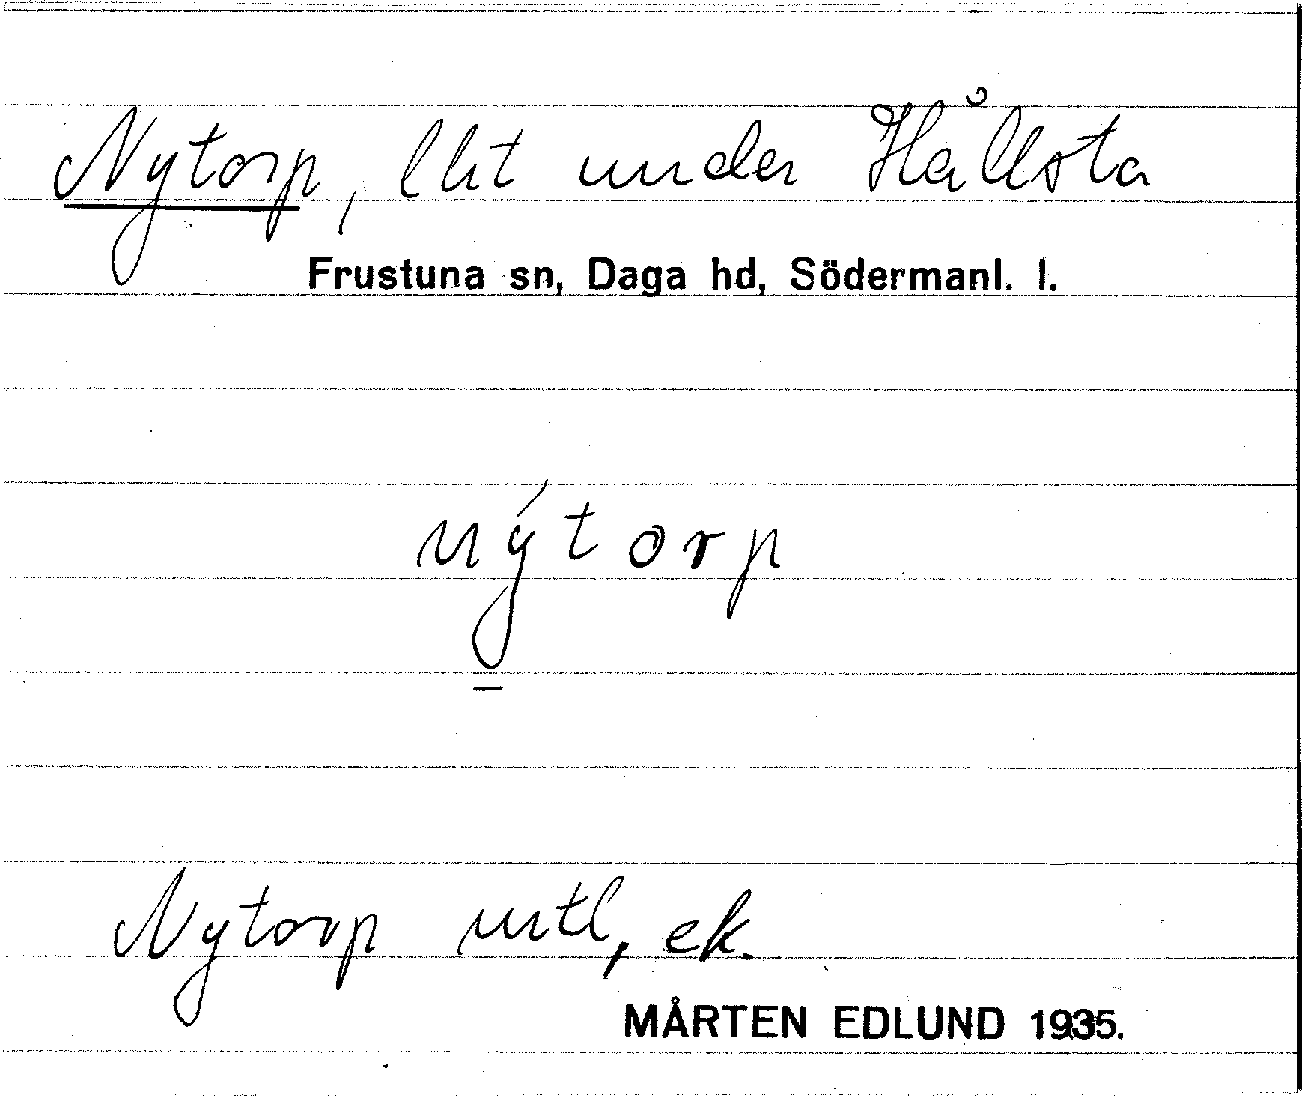 Nytorp, lht under Hållsta
Frustuna sn, Daga hd, Södermanl. l.
nýtorp
Nytorp mtl, ek.
MÅRTEN EDLUND 1935.